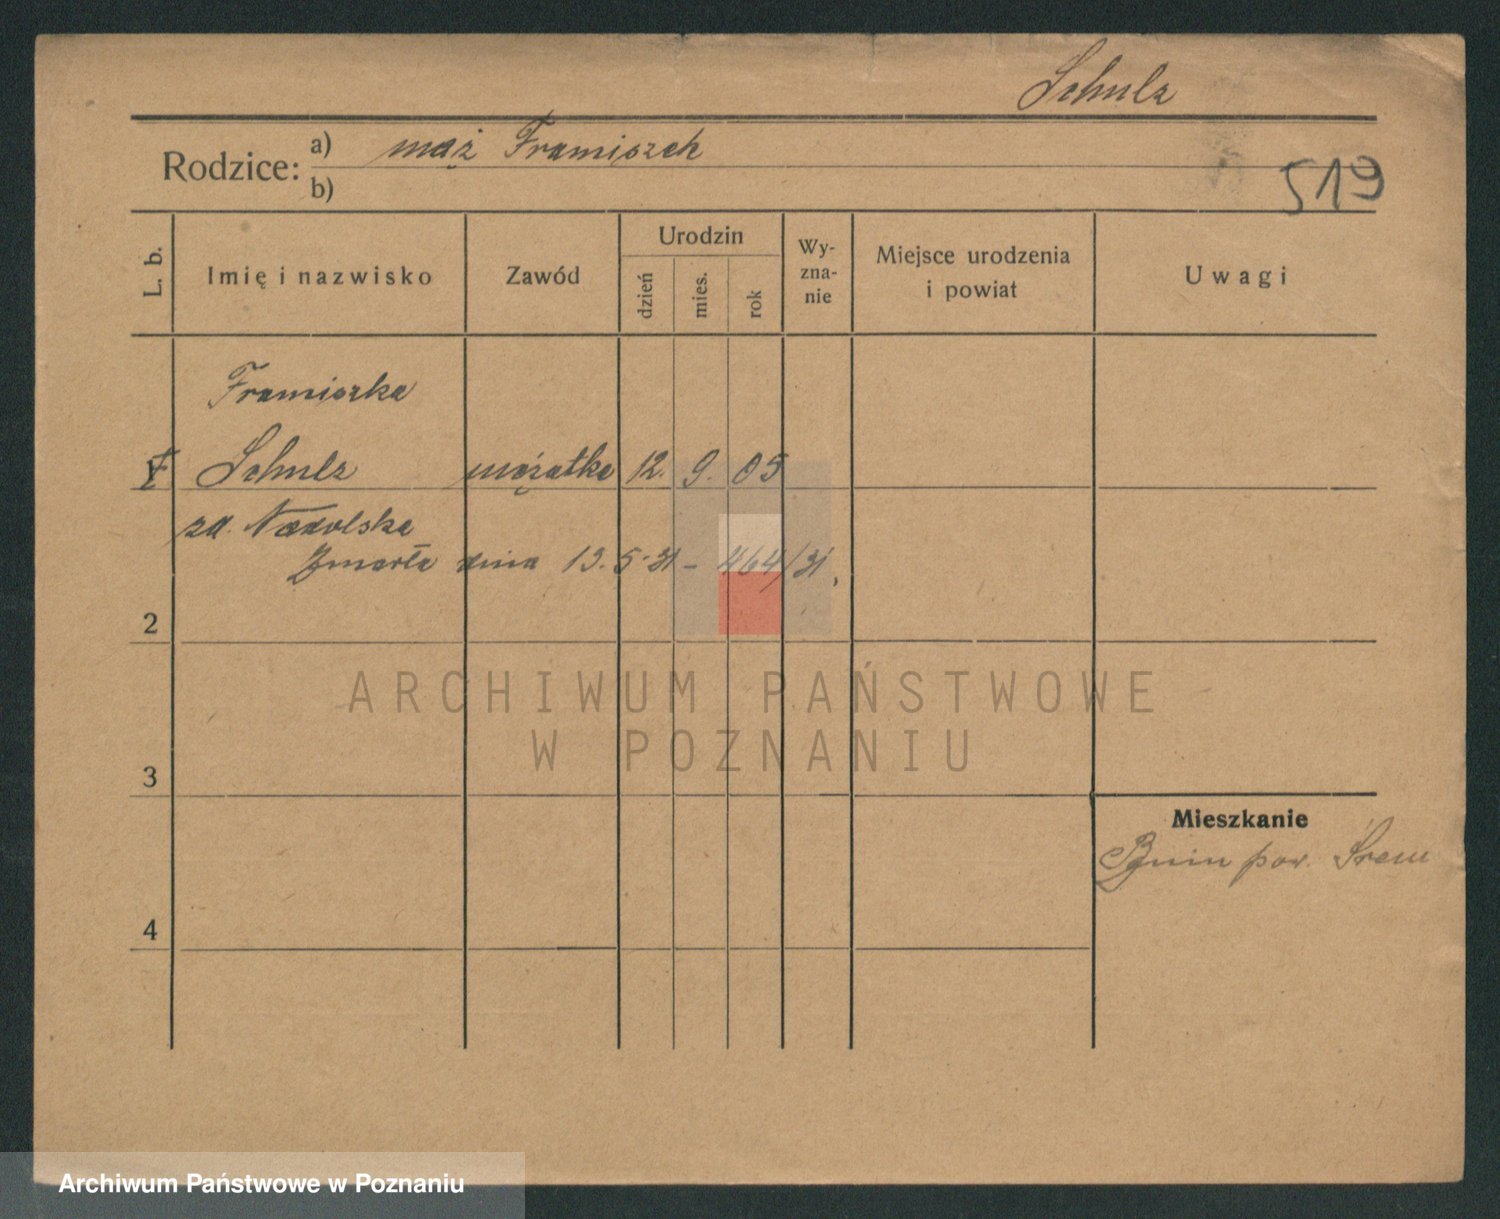 Schulz
Rodzice: a) mąż Franciszek
b)
519
L. b.
Imię i nazwisko
Zawód
Urodzin
dzień
mies.
rok
Wy-
zna-
nie
Miejsce urodzenia
i powiat
Uwagi
Franciszka
1 Schulz mężatka 12. 9. 05
zd. Nadolska
Zmarła dnia 13.5.31 – 464/31.
2
ARCHIWUM PAŃSTWOWE
W POZNANIU
3
Mieszkanie
Bnin pow. Śrem
4
Archiwum Państwowe w Poznaniu